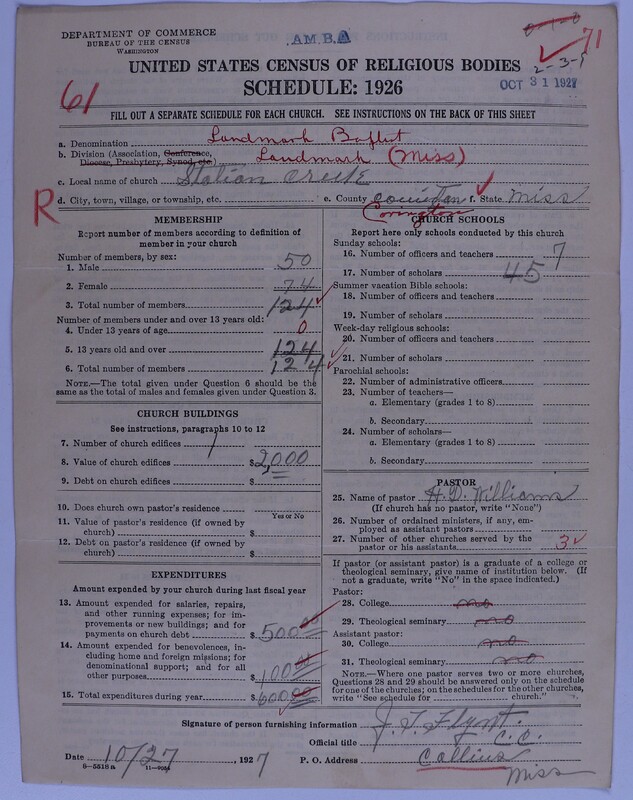 DEPARTMENT OF COMMERCE
BUREAU OF THE CENSUS
WASHINGTON
AM.B.A
71
2-3-1
OCT 31 1927
UNITED STATES CENSUS OF RELIGIOUS BODIES
SCHEDULE: 1926
61
FILL OUT A SEPARATE SCHEDULE FOR EACH CHURCH. SEE INSTRUCTIONS ON THE BACK OF THIS SHEET
a. Denomination Landmark Baptist
b. Division (Association, Conference, Diocese, Presbytery, Synod, etc.) Landmark (Miss)
c. Local name of church Station Creek
R
d. City, town, village, or township, etc. e. County Covington f. State Miss
Covington
MEMBERSHIP
Report number of members according to definition of
member in your church
Number of members, by sex:
1. Male 50
2. Female 74
3. Total number of members 124
Number of members under and over 13 years old:
4. Under 13 years of age 0
5. 13 years old and over 124
6. Total number of members 124
NOTE.—The total given under Question 6 should be the
same as the total of males and females given under Question 3.
CHURCH BUILDINGS
See instructions, paragraphs 10 to 12
7. Number of church edifices 1
8. Value of church edifices $2,000
9. Debt on church edifices $
10. Does church own pastor's residence
Yes or No
11. Value of pastor's residence (if owned by
church) $
12. Debt on pastor's residence (if owned by
church) $
EXPENDITURES
Amount expended by your church during last fiscal year
13. Amount expended for salaries, repairs,
and other running expenses; for im-
provements or new buildings; and for
payments on church debt $500.00
14. Amount expended for benevolences, in-
cluding home and foreign missions; for
denominational support; and for all
other purposes $100.00
15. Total expenditures during year $600.00
CHURCH SCHOOLS
Report here only schools conducted by this church
Sunday schools:
16. Number of officers and teachers 7
17. Number of scholars 45
Summer vacation Bible schools:
18. Number of officers and teachers
19. Number of scholars
Week-day religious schools:
20. Number of officers and teachers
21. Number of scholars
Parochial schools:
22. Number of administrative officers
23. Number of teachers—
a. Elementary (grades 1 to 8)
b. Secondary
24. Number of scholars—
a. Elementary (grades 1 to 8)
b. Secondary
PASTOR
25. Name of pastor H. D. Williams
(If church has no pastor, write "None")
26. Number of ordained ministers, if any, em-
ployed as assistant pastors
27. Number of other churches served by the
pastor or his assistants 3
If pastor (or assistant pastor) is a graduate of a college or
theological seminary, give name of institution below. (If
not a graduate, write "No" in the space indicated.)
Pastor:
28. College no
29. Theological seminary no
Assistant pastor:
30. College no
31. Theological seminary no
NOTE.—Where one pastor serves two or more churches,
Questions 28 and 29 should be answered only on the schedule
for one of the churches; on the schedules for the other churches,
write "See schedule for church."
Signature of person furnishing information J. T. Flynt.
Official title C.C.
Date 10/27, 1927 P. O. Address Collins
Miss
8-5518a 11-9054